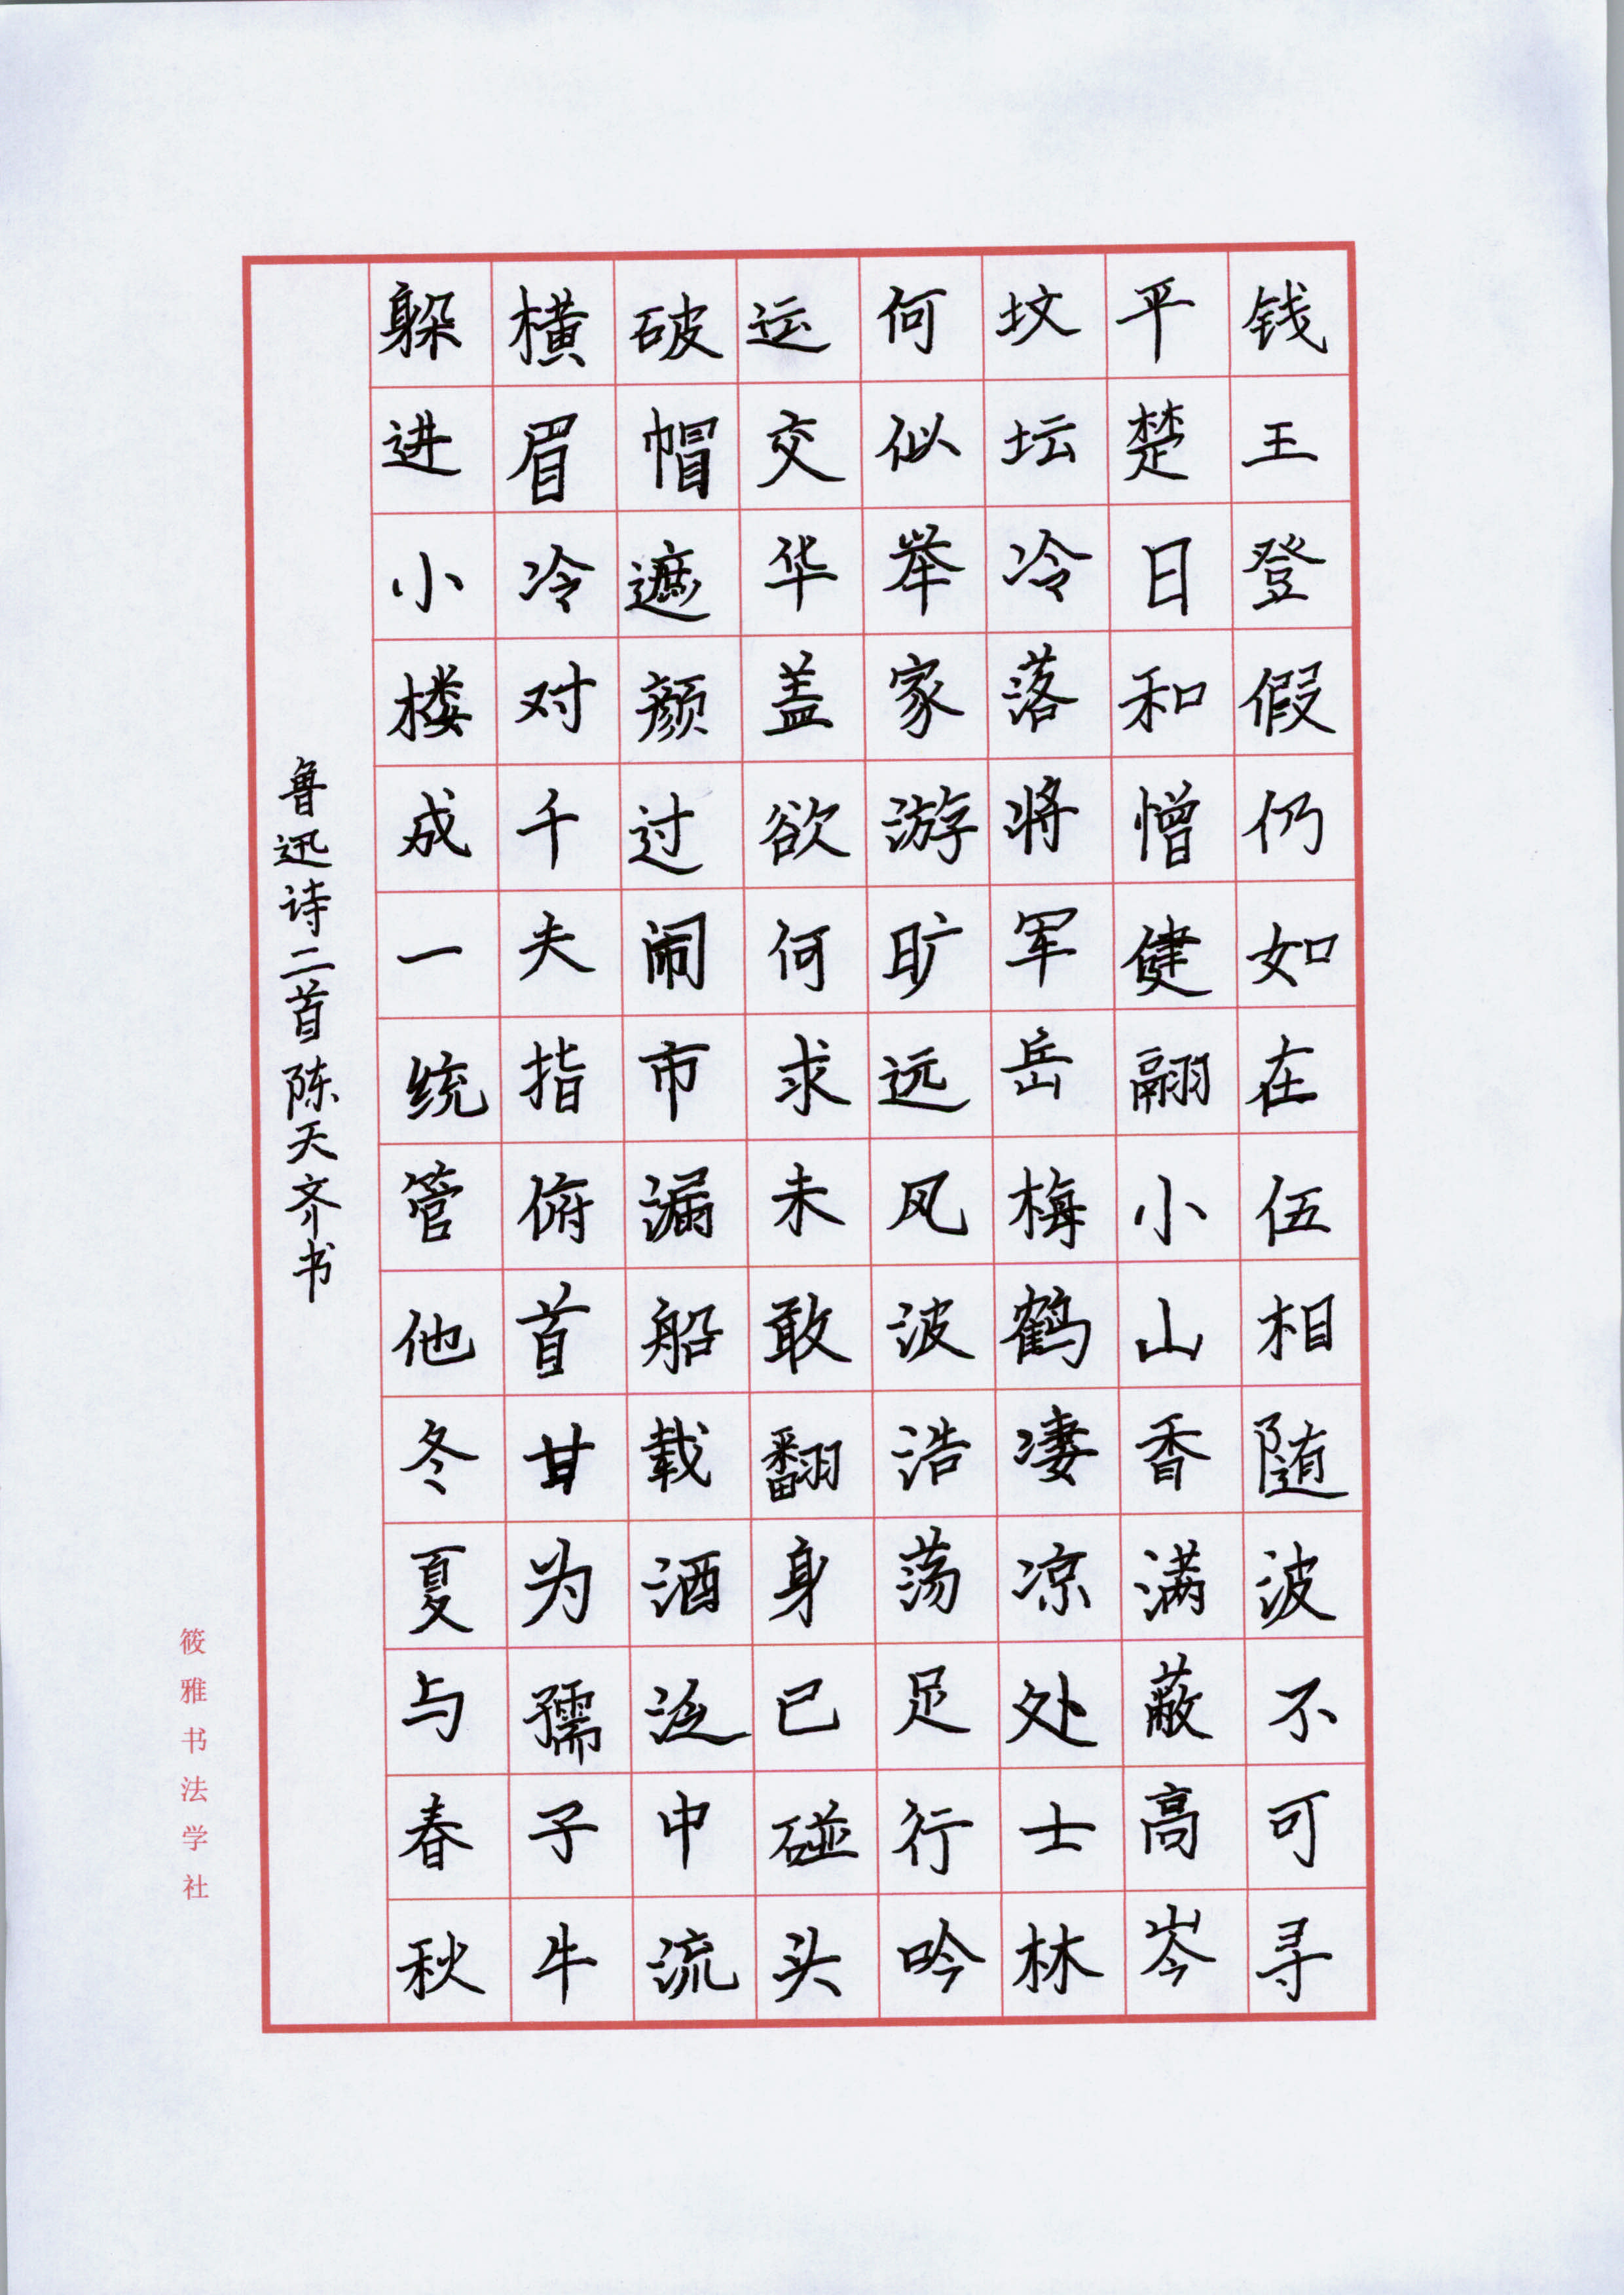 钱王登假仍如在伍相随波不可寻
平楚日和憎健翮小山香满蔽高岑
坟坛冷落将军岳梅鹤凄凉处士林
何似举家游旷远风波浩荡足行吟
运交华盖欲何求未敢翻身已碰头
破帽遮颜过闹市漏船载酒泛中流
横眉冷对千夫指俯首甘为孺子牛
躲进小楼成一统管他冬夏与春秋
鲁迅诗二首陈天齐书
筱雅书法学社